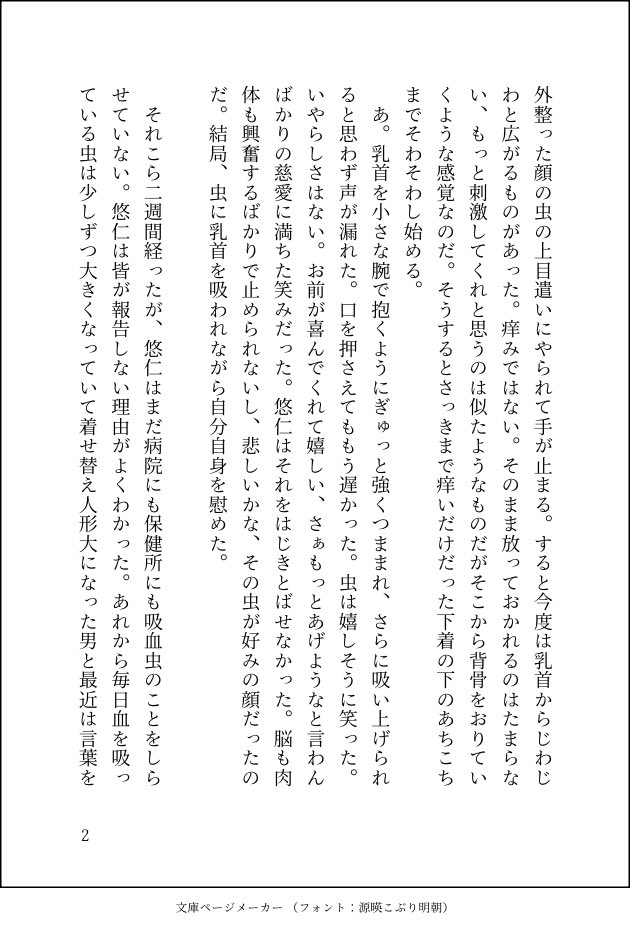 外整った顔の虫の上目遣いにやられて手が止まる。すると今度は乳首からじわじ
わと広がるものがあった。痒みではない。そのまま放っておかれるのはたまらな
い、もっと刺激してくれと思うのは似たようなものだがそこから背骨をおりてい
くような感覚なのだ。そうするとさっきまで痒いだけだった下着の下のあちこち
までそわそわし始める。
あ。乳首を小さな腕で抱くようにぎゅっと強くつままれ、さらに吸い上げられ
ると思わず声が漏れた。口を押さえてももう遅かった。虫は嬉しそうに笑った。
いやらしさはない。お前が喜んでくれて嬉しい、さぁもっとあげようなと言わん
ばかりの慈愛に満ちた笑みだった。悠仁はそれをはじきとばせなかった。脳も肉
体も興奮するばかりで止められないし、悲しいかな、その虫が好みの顔だったの
だ。結局、虫に乳首を吸われながら自分自身を慰めた。
それこら二週間経ったが、悠仁はまだ病院にも保健所にも吸血虫のことをしら
せていない。悠仁は皆が報告しない理由がよくわかった。あれから毎日血を吸っ
ている虫は少しずつ大きくなっていて着せ替え人形大になった男と最近は言葉を
2
文庫ページメーカー（フォント：源暎こぶり明朝）